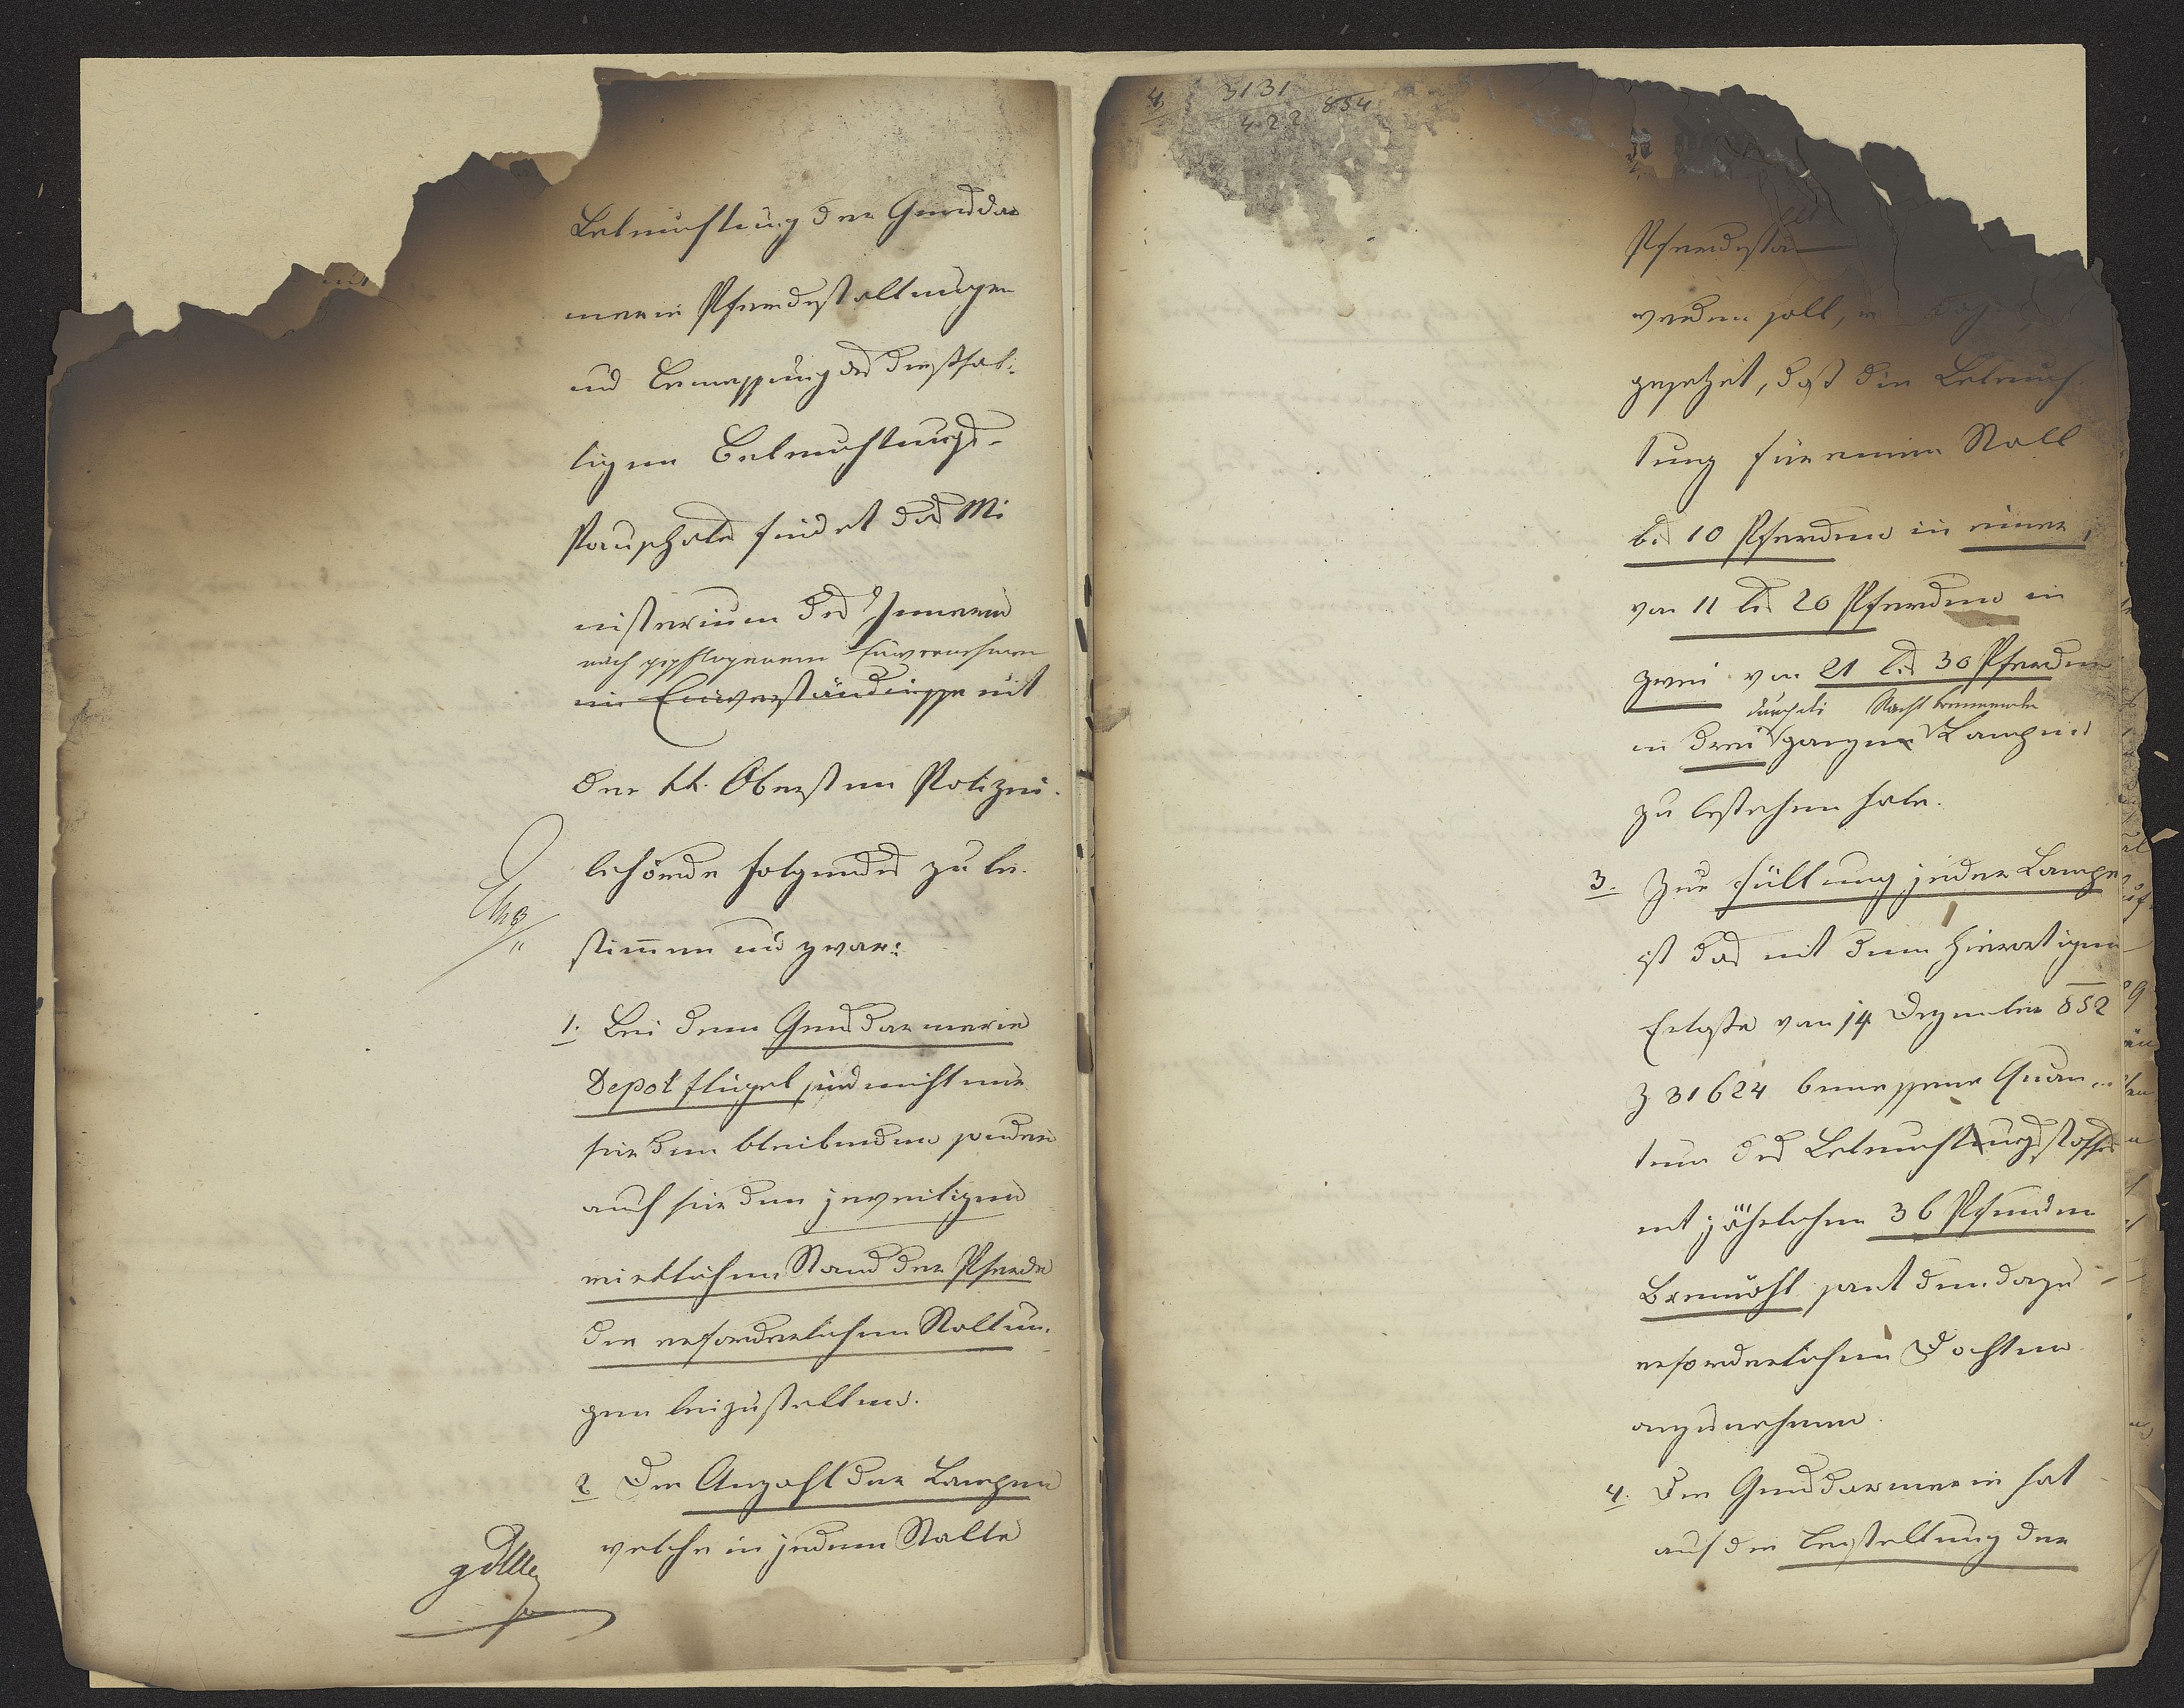 Beleuchtung der Gensdar
merie Pferdestallungen
und Bemessung des diesfäl-
ligen Beleuchtungs-
Pauschals findet das Mi
nisterium des Innern
nach gepflogenem Einvernehmen
im Einverständnisse mit
der kk. Obersten Polizei-
behörde folgendes zu be-
stimmen und zwar:
1. Bei dem Gensdarmerie
Depot flügel sind nicht nur
für den bleibenden sondern
auch für den jeweiligen
wirklichen Stand der Pferde
die erforderlichen Stallun-
gen beizustellen.
2 Die Anzahl der Lampen
welche in jedem Stalle
4 3131
422 854
Pferdesta
werden soll,
gesetzt, daß die Beleuch
tung für einen Stall
bis 10 Pferden in einer,
von 11 bis 20 Pferden in
zwei von 21 bis 30 Pferden
durch die Nacht brennenden
in drei ganzen Lampen
zu bestehen habe.
3. Zur Füllung jeder Lampe
ist das mit dem hierortigen
Erlaße vom 14 Dezember 852
Z 31624 bemessene Quan-
tum des Beleuchtungsstoffes
mit jährlichen 36 Pfunden
Brennöhl samt den dazu
erforderlichen Dochten
anzunehmen.
4. Die Gensdarmerie hat
auf die Beistellung der